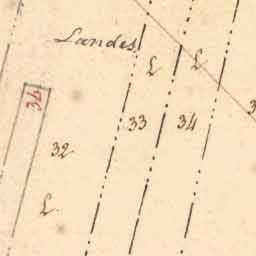 Landes
L
L
34
33
34
3
32
L